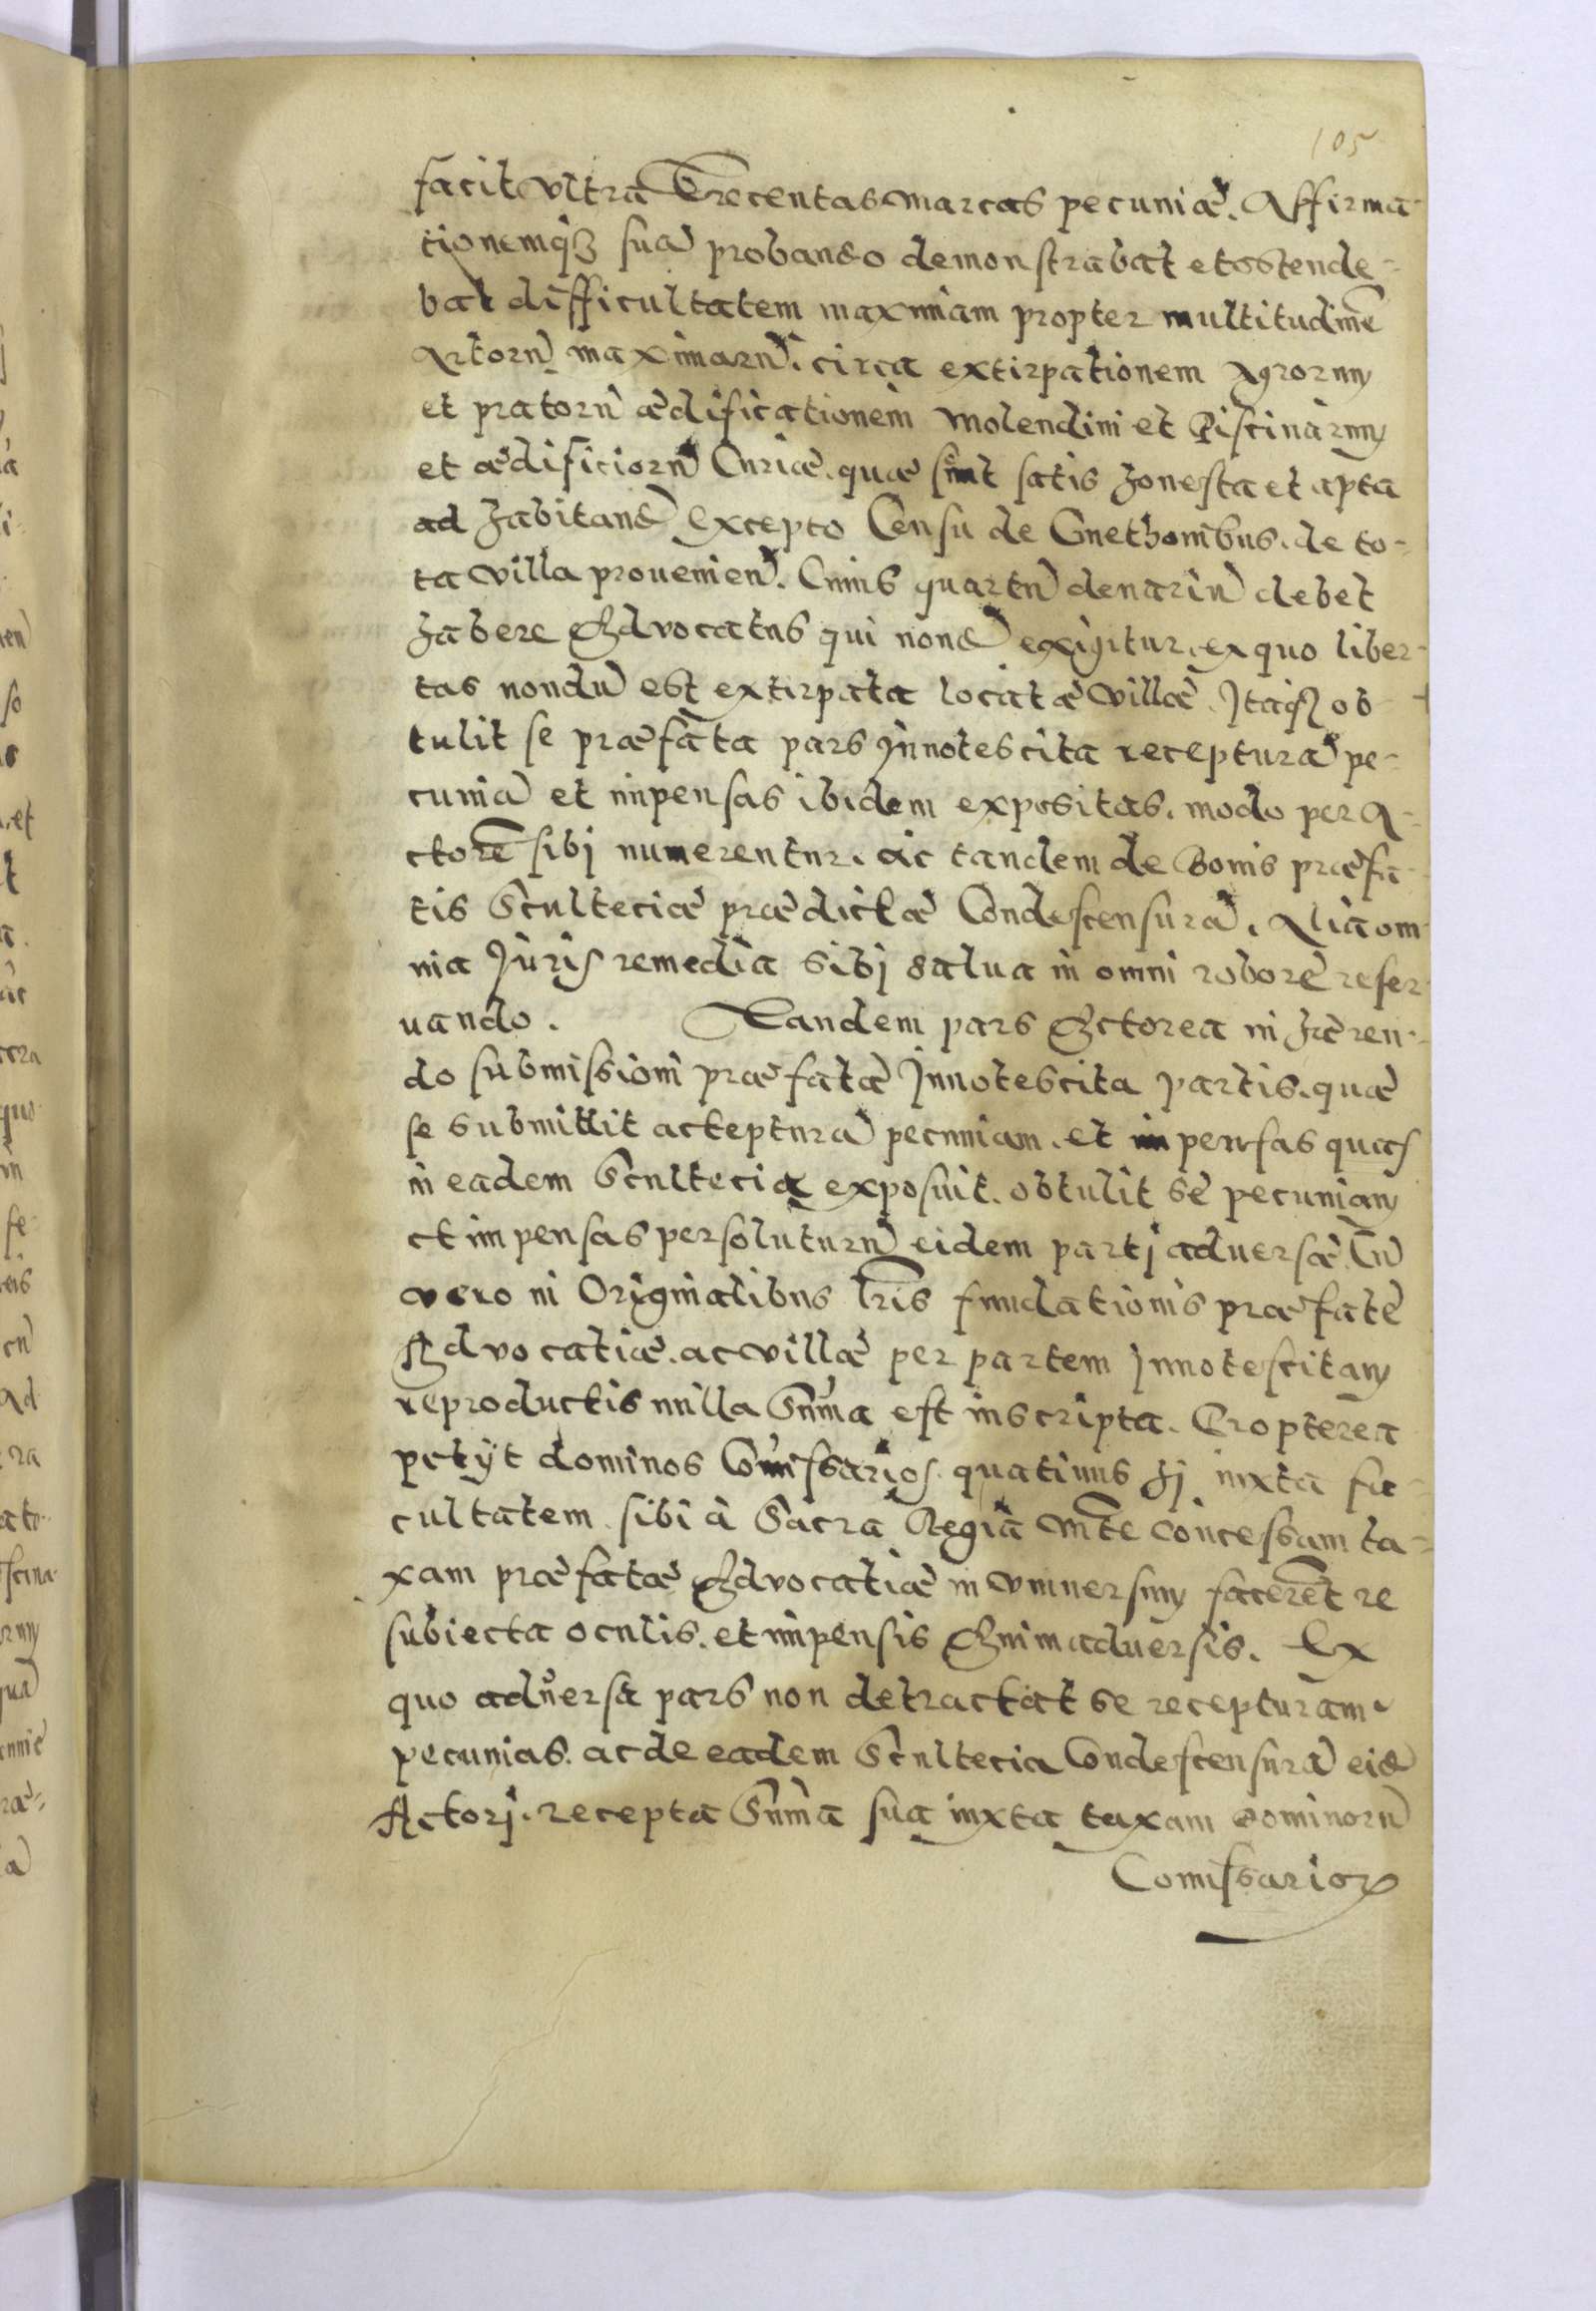 105
facit vltra Trecentas marcas pecuniæ. Affirma-
tionemq₃ suā probando demonstrabat et ostende-
bat difficultatem maximam propter multitudinē
Artorū maximarū. circa extirpationem Agrorum
et pratorū ædificationem Molendini et Piscinarum
et ædificiorū Curiæ. quæ sunt satis honesta et apta
ad habitand Excepto Censu de Cmethonibus. de to-
ta villa prouenien. Cuius quartū denariū debet
habere Advocatus qui nond exigitur. ex quo liber-
tas nondū est extirpata locatæ villæ. Itaq₃ ob
tulit se præfata pars Innotescita recepturā pe-
cuniā et impensas ibidem expositas. modo per A-
ctorē sibj numerentur. ac tandem de Bonis præfa-
tis Scultetiæ prædictæ Condescensurā. Alia om
nia Juris remedia sibj salua in omni robore reser
uando. Tandem pars Actorea in hæren-
do submissioni præfatæ Innotescita partis. quæ
se submittit acceptura pecuniam. et impensas quas
in eadem Scultetia exposuit. obtulit se pecuniam
et impensas persoluturū eidem partj aduersæ. Cū
vero in Originalibus lris fundationis præfate
Advocatiæ. ac villæ per partem Innotescitam
reproductis nulla Suma est inscripta. Propterea
petyt dominos Comissarios. quatinus hj iuxta fa-
cultatem sibi à Sacra Regia Mte concessam ta-
xam præfatæ Advocatiæ in vniuersum facerēt re
subiecta oculis. et impensis Animaduersis. Ex
quo aduersa pars non detractat se recepturam
pecunias. ac de eadem Scultetia Condescensurā eid
Actorj. recepta Suma sua iuxta taxam dominorū
Comissarioꝝ